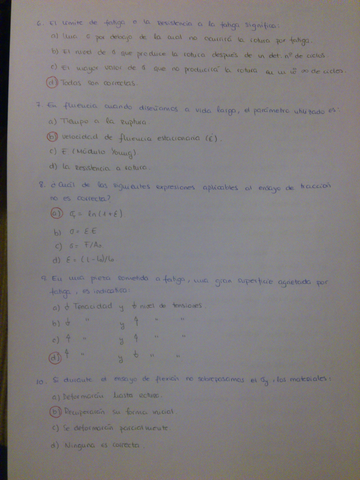 6. El límite de fatiga o la resistencia a la fatiga significa:
a) Un S por debajo de la cual no ocurrirá la rotura por fatiga.
b) El valor de S que produce la rotura después de un det. nº de ciclos
c) El mayor valor de S que no producirá la rotura en un nº de ciclos
d) Todas son correctas.
7. En fluencia cuando diseñamos a vida larga, el parámetro utilizado es:
a) Tiempo a la ruptura
b) Velocidad de fluencia estacionaria (ε̇).
c) E (Módulo Young)
d) La resistencia a rotura
8. ¿Cuál de las siguientes expresiones aplicables al ensayo de tracción
no es correcta?
b) σ = Eε
c) σ = F/A₀
9. En una pieza sometida a fatiga, una gran superficie agrietada por
fatiga, es indicativo:
a) ↑ Tenacidad y ↑ nivel de tensiones.
b) ↑ " y ↓ " "
c) ↓ " y ↓ " "
d) ↓ " y ↑ " "
10. Si durante el ensayo de no sobrepasamos el σy, los materiales:
a) Deformarán hasta
b) Recuperarán su forma inicial
c) Se deformarán parcialmente
d) Ninguna es correcta